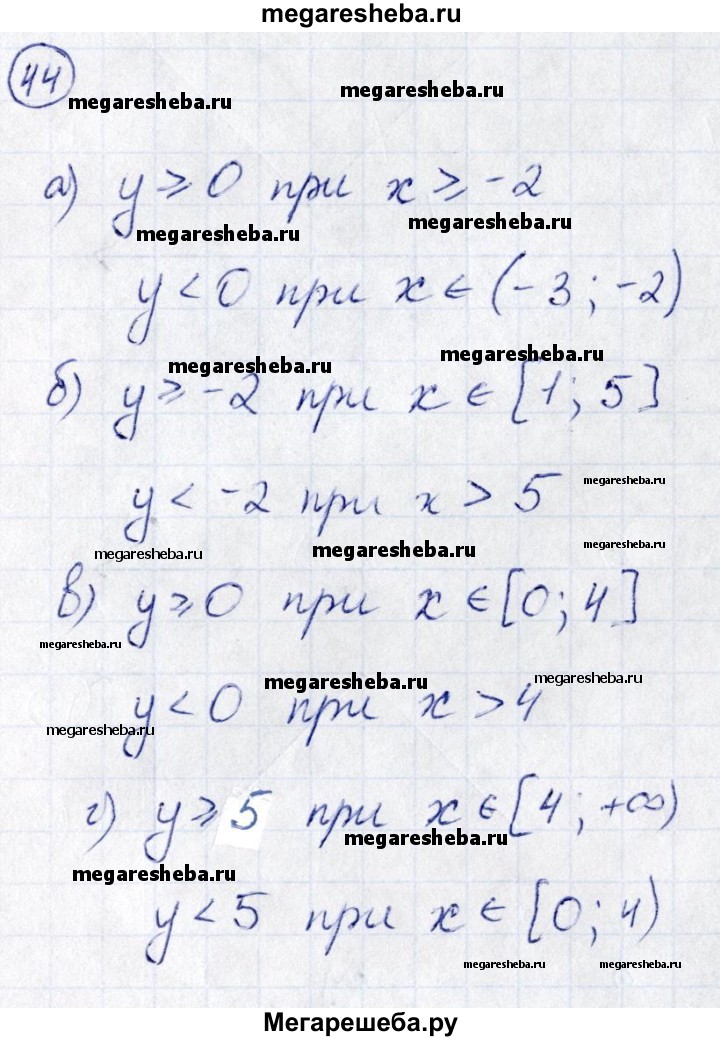 megaresheba.ru
44
megaresheba.ru megaresheba.ru
а) y ≥ 0 при x ≥ -2
megaresheba.ru megaresheba.ru
y < 0 при x ∈ (-3; -2)
megaresheba.ru megaresheba.ru
б) y ≥ -2 при x ∈ [1; 5]
y < -2 при x > 5 megaresheba.ru
megaresheba.ru megaresheba.ru megaresheba.ru
в) y ≥ 0 при x ∈ [0; 4]
megaresheba.ru
megaresheba.ru megaresheba.ru
y < 0 при x > 4
megaresheba.ru
г) y ≥ 5 при x ∈ [4; +∞)
megaresheba.ru
megaresheba.ru
y < 5 при x ∈ [0; 4)
megaresheba.ru megaresheba.ru
Мегарешеба.ру